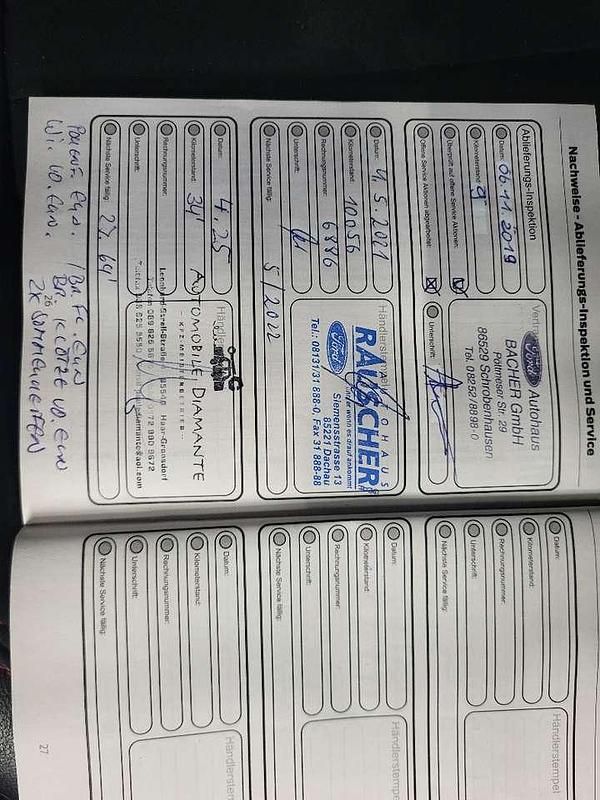 Nachweise - Ablieferungs-Inspektion und Service
Ablieferungs-Inspektion
Datum: 06.11.2019
Kilometerstand: 9
Überprüft auf offene Service Aktionen:
Offene Service Aktionen abgearbeitet:
Ford Autohaus
BACHER GmbH
Pöttmeser Str. 29
86529 Schrobenhausen
Tel. 08252/8898-0
Unterschrift:
Datum: 4.5.2021
Kilometerstand: 10056
Rechnungsnummer: 6886
Unterschrift:
Nächste Service fällig: 5/2022
Händlerstempel
AUTOHAUS
RAUSCHER
Immer wenn es drauf ankommt
Ford
Siemensstrasse 13
85221 Dachau
Tel.: 08131/31 888-0, Fax 31 888-88
Datum: 4.25
Kilometerstand: 34'
Rechnungsnummer:
Unterschrift:
Nächste Service fällig: 27. 64'
AUTOMOBILE DIAMANTE
- KFZ-MEISTERBETRIEB -
85540 Haar-Gronsdorf
26
Datum:
Kilometerstand:
Rechnungsnummer:
Unterschrift:
Nächste Service fällig:
Händlerstempel
Datum:
Kilometerstand:
Rechnungsnummer:
Unterschrift:
Nächste Service fällig:
Händlerstempel
Datum:
Kilometerstand:
Rechnungsnummer:
Unterschrift:
Nächste Service fällig:
Händlerstempel
27